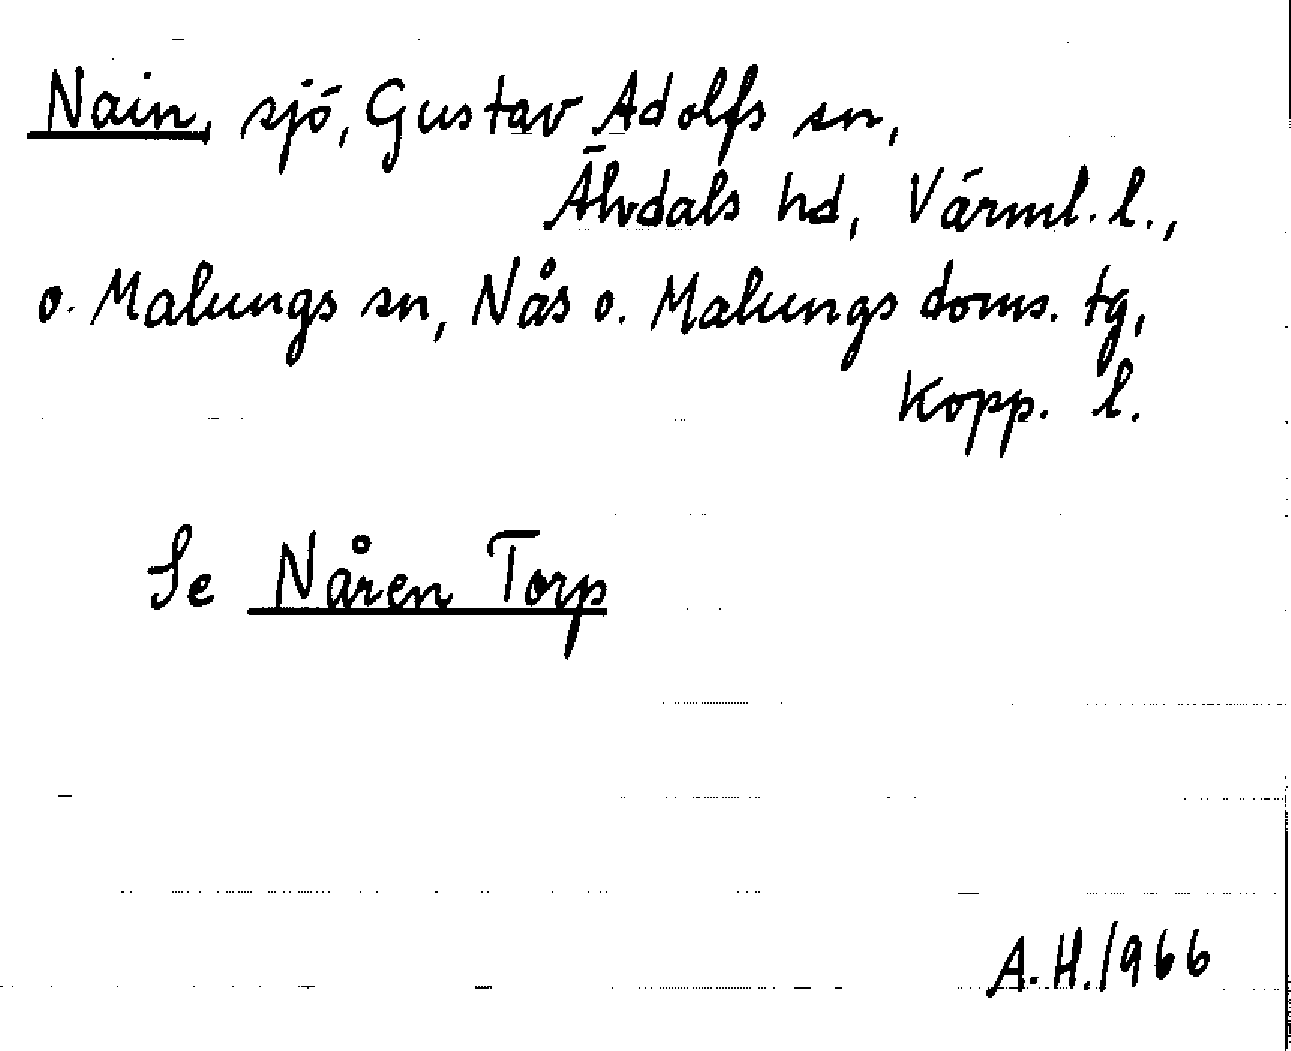 Nain, sjö, Gustav Adolfs sn,
Älvdals hd, Värml. l.,
o. Malungs sn, Nås o. Malungs doms. tg,
Kopp. l.
Se Nåren Torp
A.H. 1966